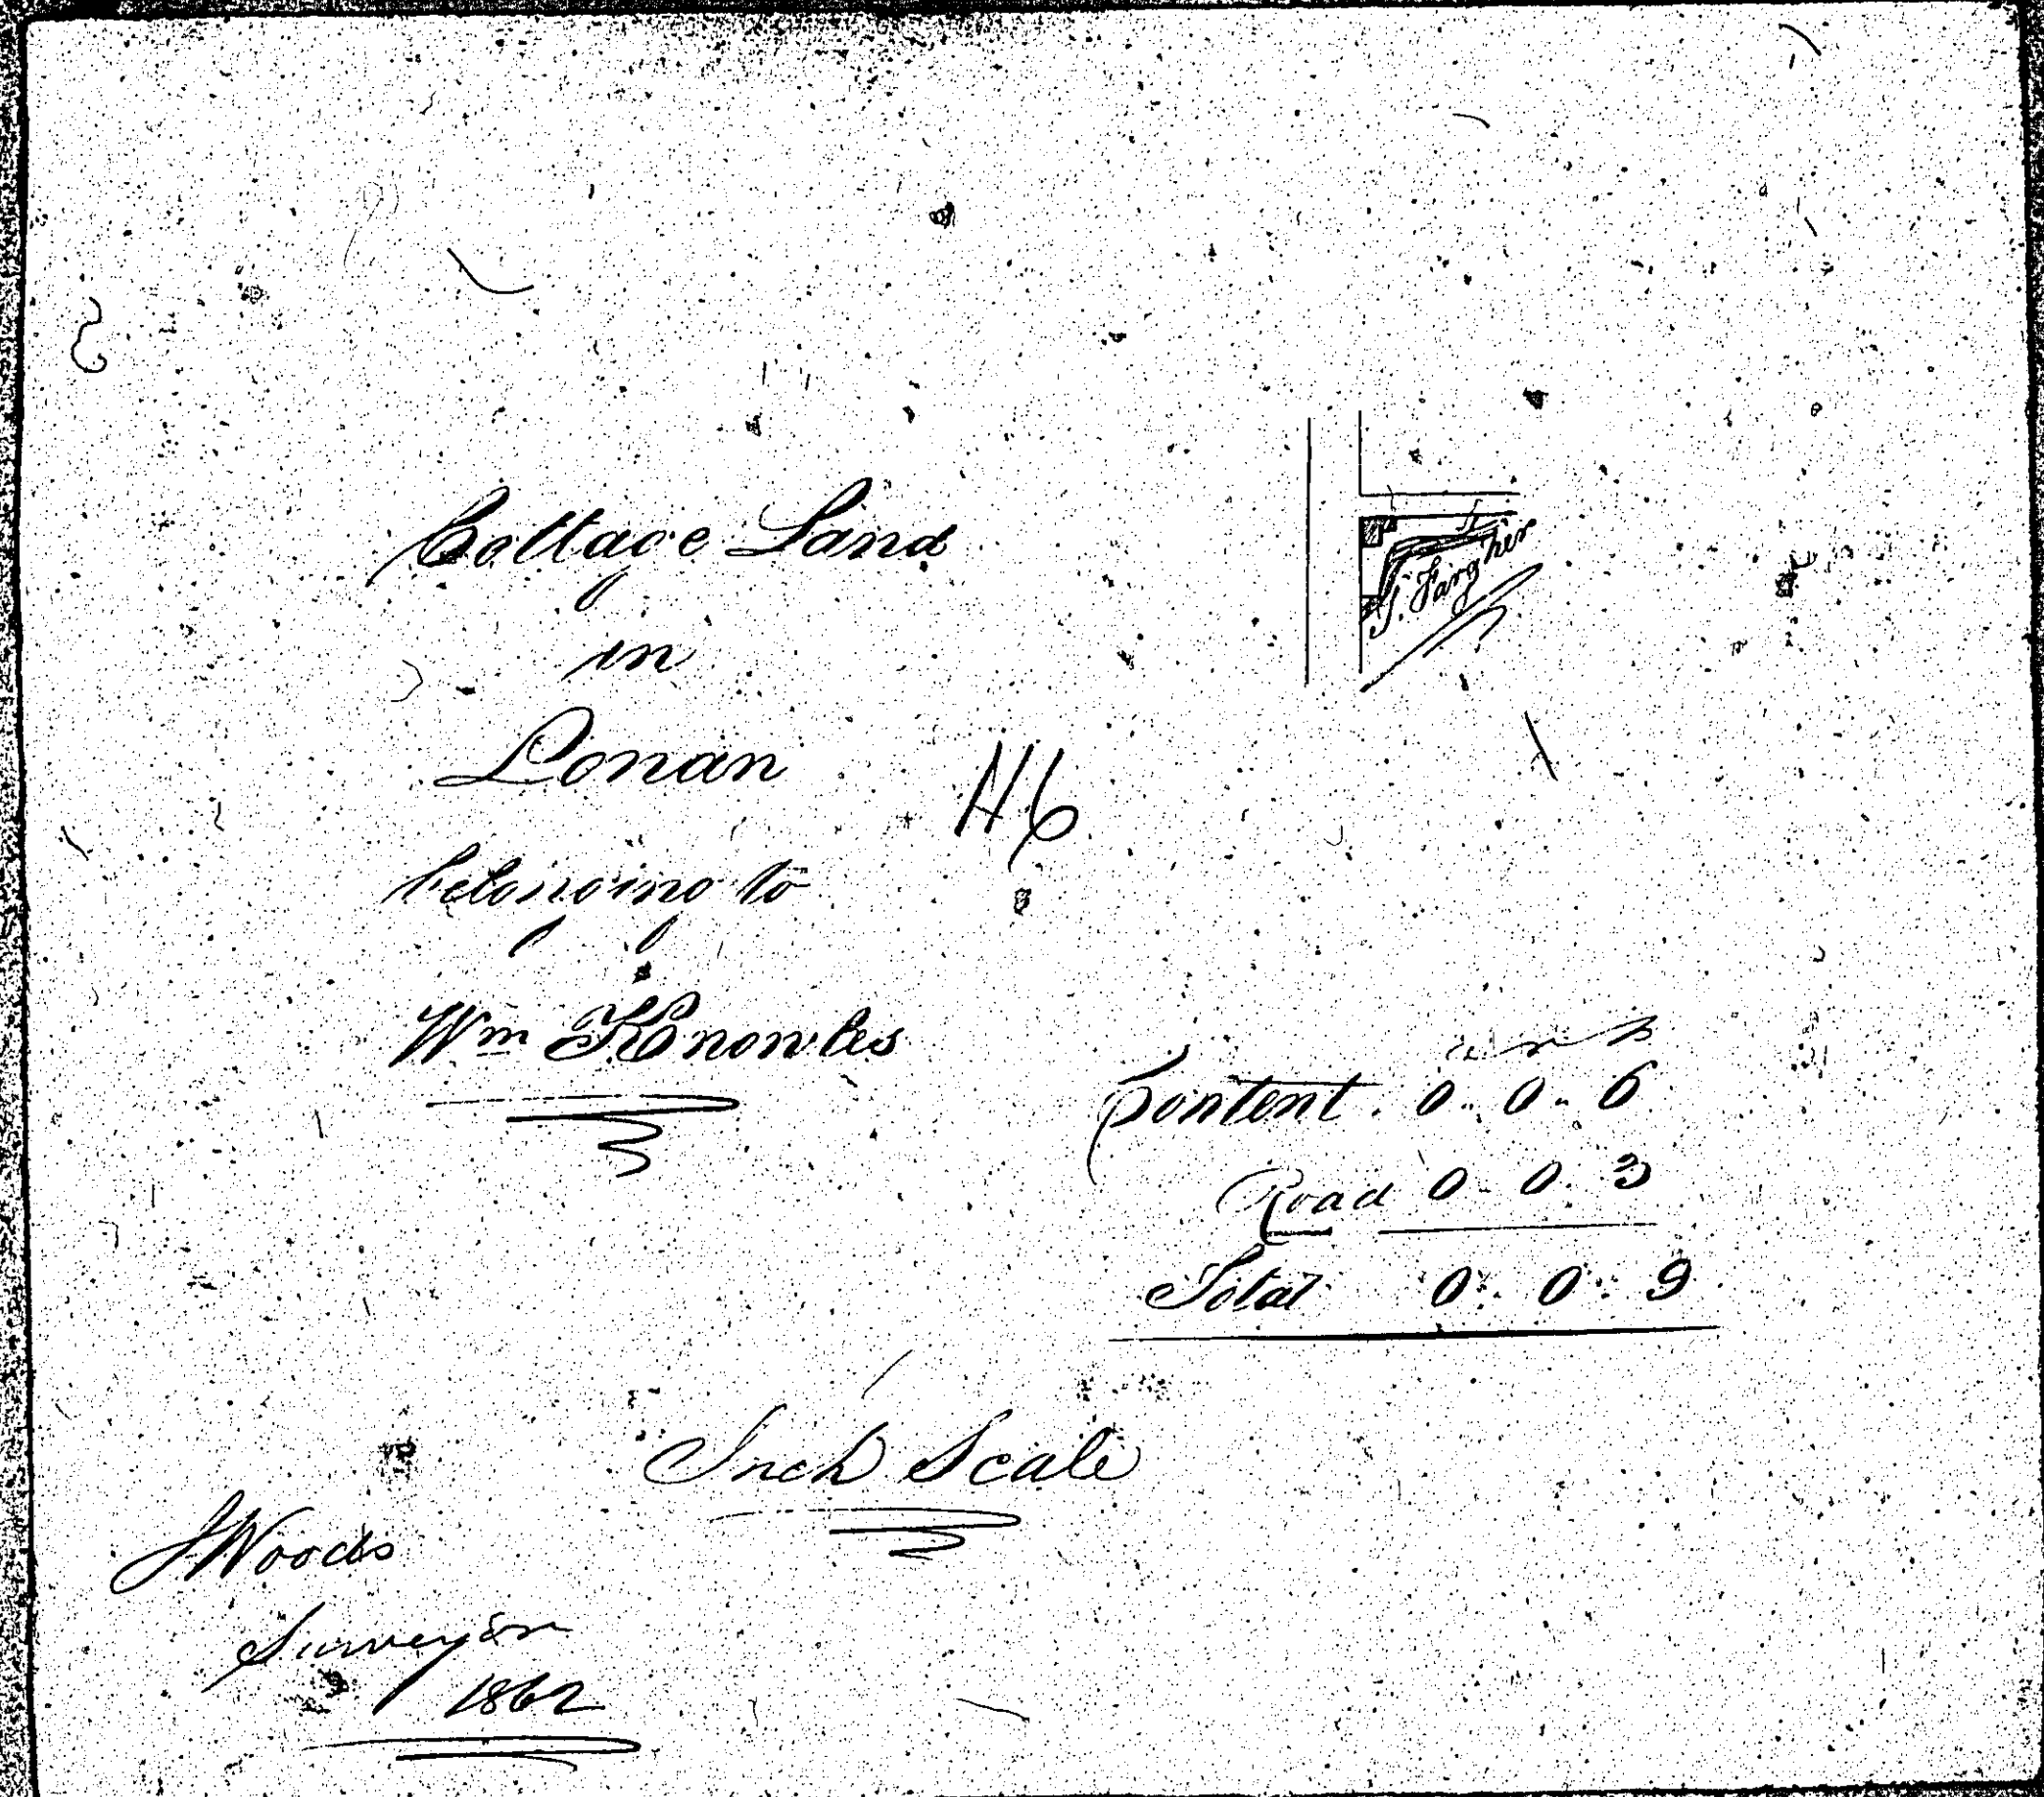 Cottage Land
in
Lonan
46
belonging to
Wm Knowles
J. Fargher
a r p
Content. 0. 0. 6
Road 0. 0. 3
Total 0. 0. 9
Inch Scale
J Woods
Surveyor
1862